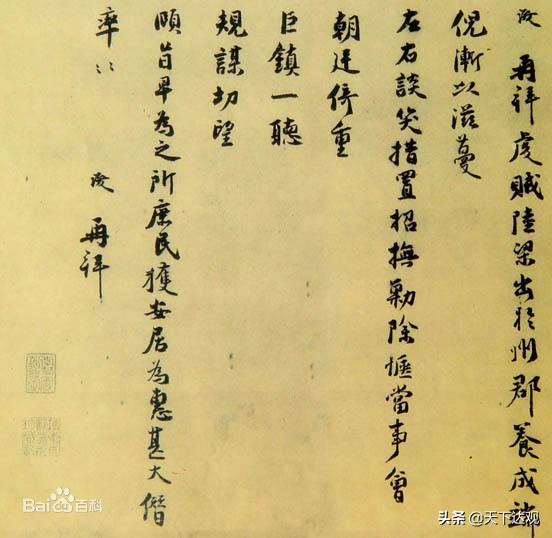 浚 再拜虔賊陸梁出於州郡養成端
倪漸以滋蔓
左右談笑措置招撫勦除愜當事會
朝廷倚重
巨鎮一聽
規謀切望
頤旨早為之所庶民獲安居為惠甚大僭
率〻
浚 再拜
Bai百科
头条 @天下达观